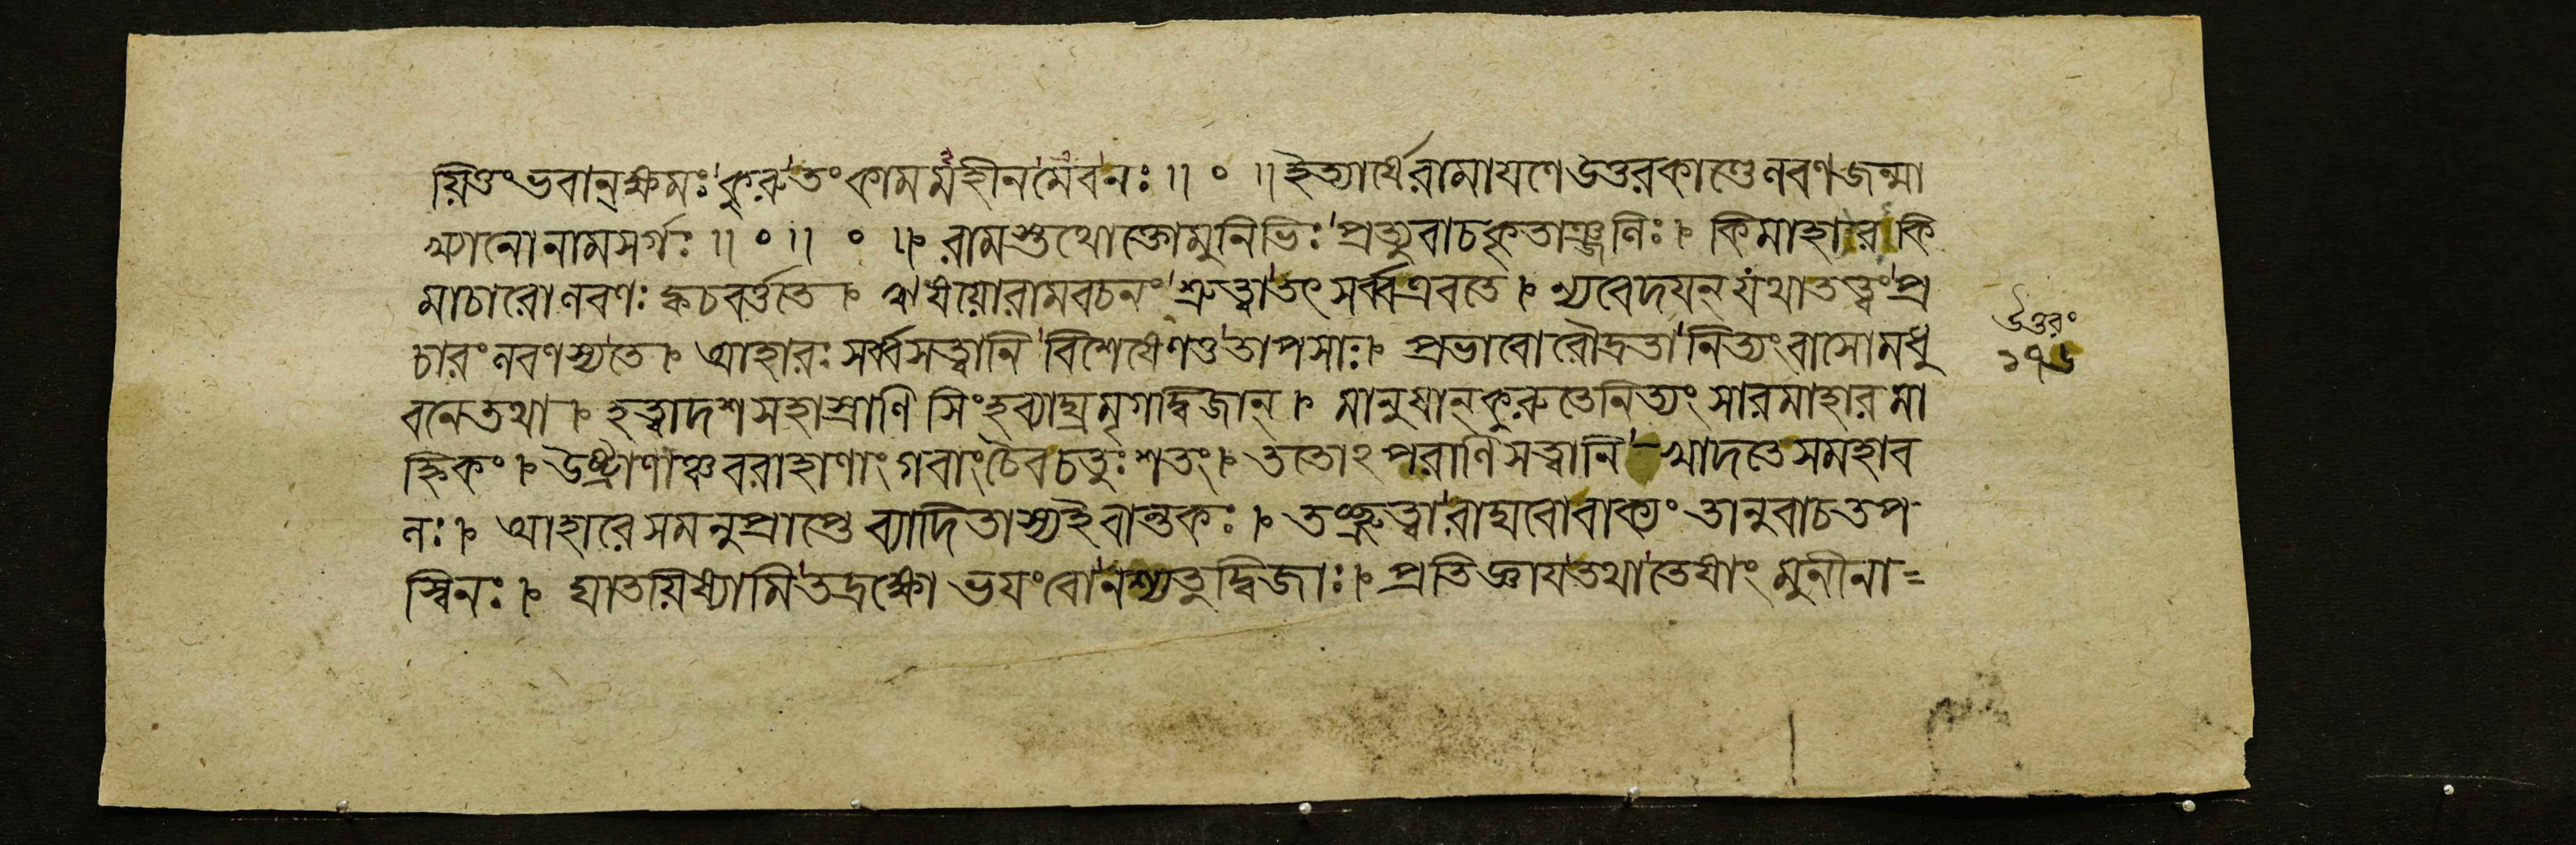 য়িতুং ভবান্ রক্ষমঃ কুরু তং কামমহীনমেব নঃ ॥ ० ॥ ইত্যার্ষে রামাযণে উত্তরকাণ্ডে লবণজন্মা
খ্যানো নাম সর্গঃ ॥ ० ॥ ० ॥ রামস্তথোক্তো মুনিভিঃ প্রত্যুবাচ কৃতাঞ্জলিঃ । কিমাহার কি
মাচারো লবণঃ ক্ব চ বর্ত্ততে । ঋষয়ো রামবচনং শ্রুত্বা তৎ সর্ব্ব এব তে । ন্যবেদযন্ যথাতত্ত্বং প্র
চারং লবণস্য তে । আহারঃ সর্ব্বসত্ত্বানি বিশেষেণ তু তাপসাঃ । প্রভাবো রৌদ্রতা নিত্যং বাসো মধু
বনে তথা । হত্বা দশসহাস্রাণি সিংহব্যাঘ্রমৃগাদ্বিজান্ । মানুষান্ কুরুতে নিত্যং সারমাহারমা
হ্নিকং । উষ্ট্রাণাঞ্চ বরাহাণাং গবাং চৈব চতুঃশতং । ততোঽপরাণি সত্ত্বানি খাদতে স মহাব
লঃ । আহারে সমনুপ্রাপ্তে ব্যাদিতাস্য ইবান্তকঃ । তচ্ছ্রুত্বা রাঘবো বাক্যং তানুবাচ তপ
স্বিনঃ । ঘাতয়িষ্যামি তদ্রক্ষো ভযং বো নশ্যতু দ্বিজাঃ । প্রতিজ্ঞায তথা তেষাং মুনীনা=
উত্তরং
১৭৬